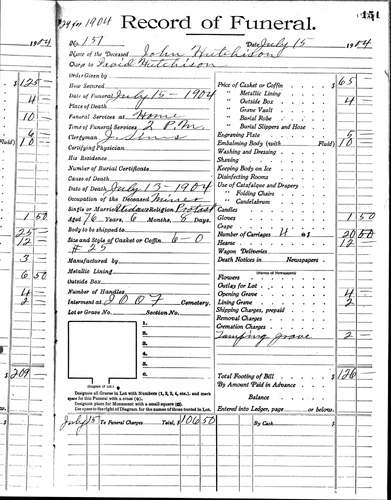 29 for 1904
Record of Funeral.
151
1904
No. 151
Date July 15 1904
Name of the Deceased John Hutchison
Charge to David Hutchison
Order Given by
How Secured
Date of Funeral July 15 - 1904
Place of Death
Funeral Services at Home
Time of Funeral Services 2 P.M.
Clergyman J. Sims
Certifying Physician
His Residence
Number of Burial Certificate
Cause of Death
Date of Death July 13 - 1904
Occupation of the Deceased Miner
Single or Married Widower Religion Protest
Aged 76 Years, 6 Months, 5 Days.
Body to be shipped to
Size and Style of Casket or Coffin 6-0
# 25
Manufactured by
Metallic Lining
Outside Box
Number of Handles
Interment at I O O F Cemetery.
Lot or Grave No. Section No.
1.
2.
3.
4.
5.
6.
Diagram of Lot.
Designate all Graves in Lot with Numbers (1, 2, 3, 4, etc.), and mark
space for this Funeral with a cross (x).
Designate place for Monument with a small square (□).
Use space to the right of Diagram for the names of those buried in Lot.
Price of Casket or Coffin $ 65
" Metallic Lining
" Outside Box 4
" Grave Vault
" Burial Robe
" Burial Slippers and Hose
Engraving Plate 5
Embalming Body (with Fluid) 10
Washing and Dressing
Shaving
Keeping Body on Ice
Disinfecting Rooms
Use of Catafalque and Drapery
" Folding Chairs
" Candelabrum
Candles
Gloves 1 50
Crape
Number of Carriages 4 20 50
Hearse 12
Wagon Deliveries
Death Notices in Newspapers
(Names of Newspapers)
Flowers
Outlay for Lot
Opening Grave 4
Lining Grave 2
Shipping Charges, prepaid
Removal Charges
Cremation Charges
Tamping grave 2
Total Footing of Bill $ 126
By Amount Paid in Advance
Balance
Entered into Ledger, page or below.
July 15 To Funeral Charges Total, $ 106 50
By Cash
$ 125
4
10
6
Fluid) 10
1 50
25
12
3
6 50
4
2
$ 209